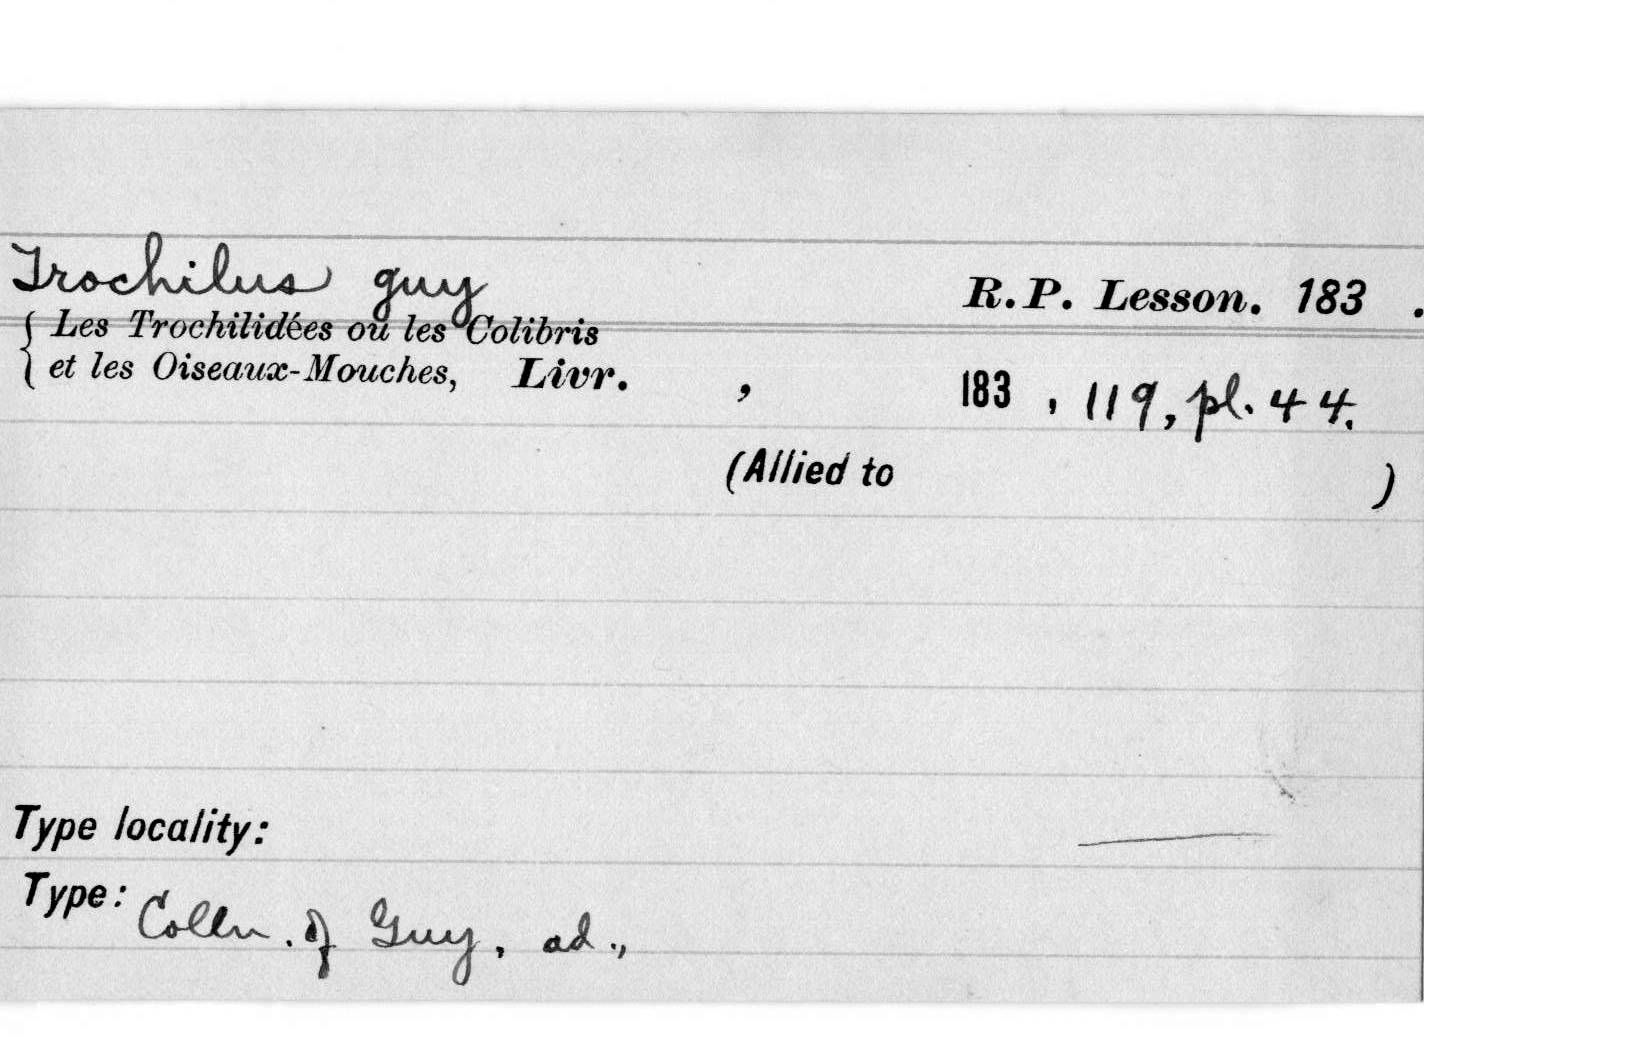 Trochilus guy R.P. Lesson. 183 .
{ Les Trochilidées ou les Colibris
et les Oiseaux-Mouches, Livr. , 183 , 119, pl. 44.
(Allied to )
Type locality:
Type: Colln. of Guy, ad.,